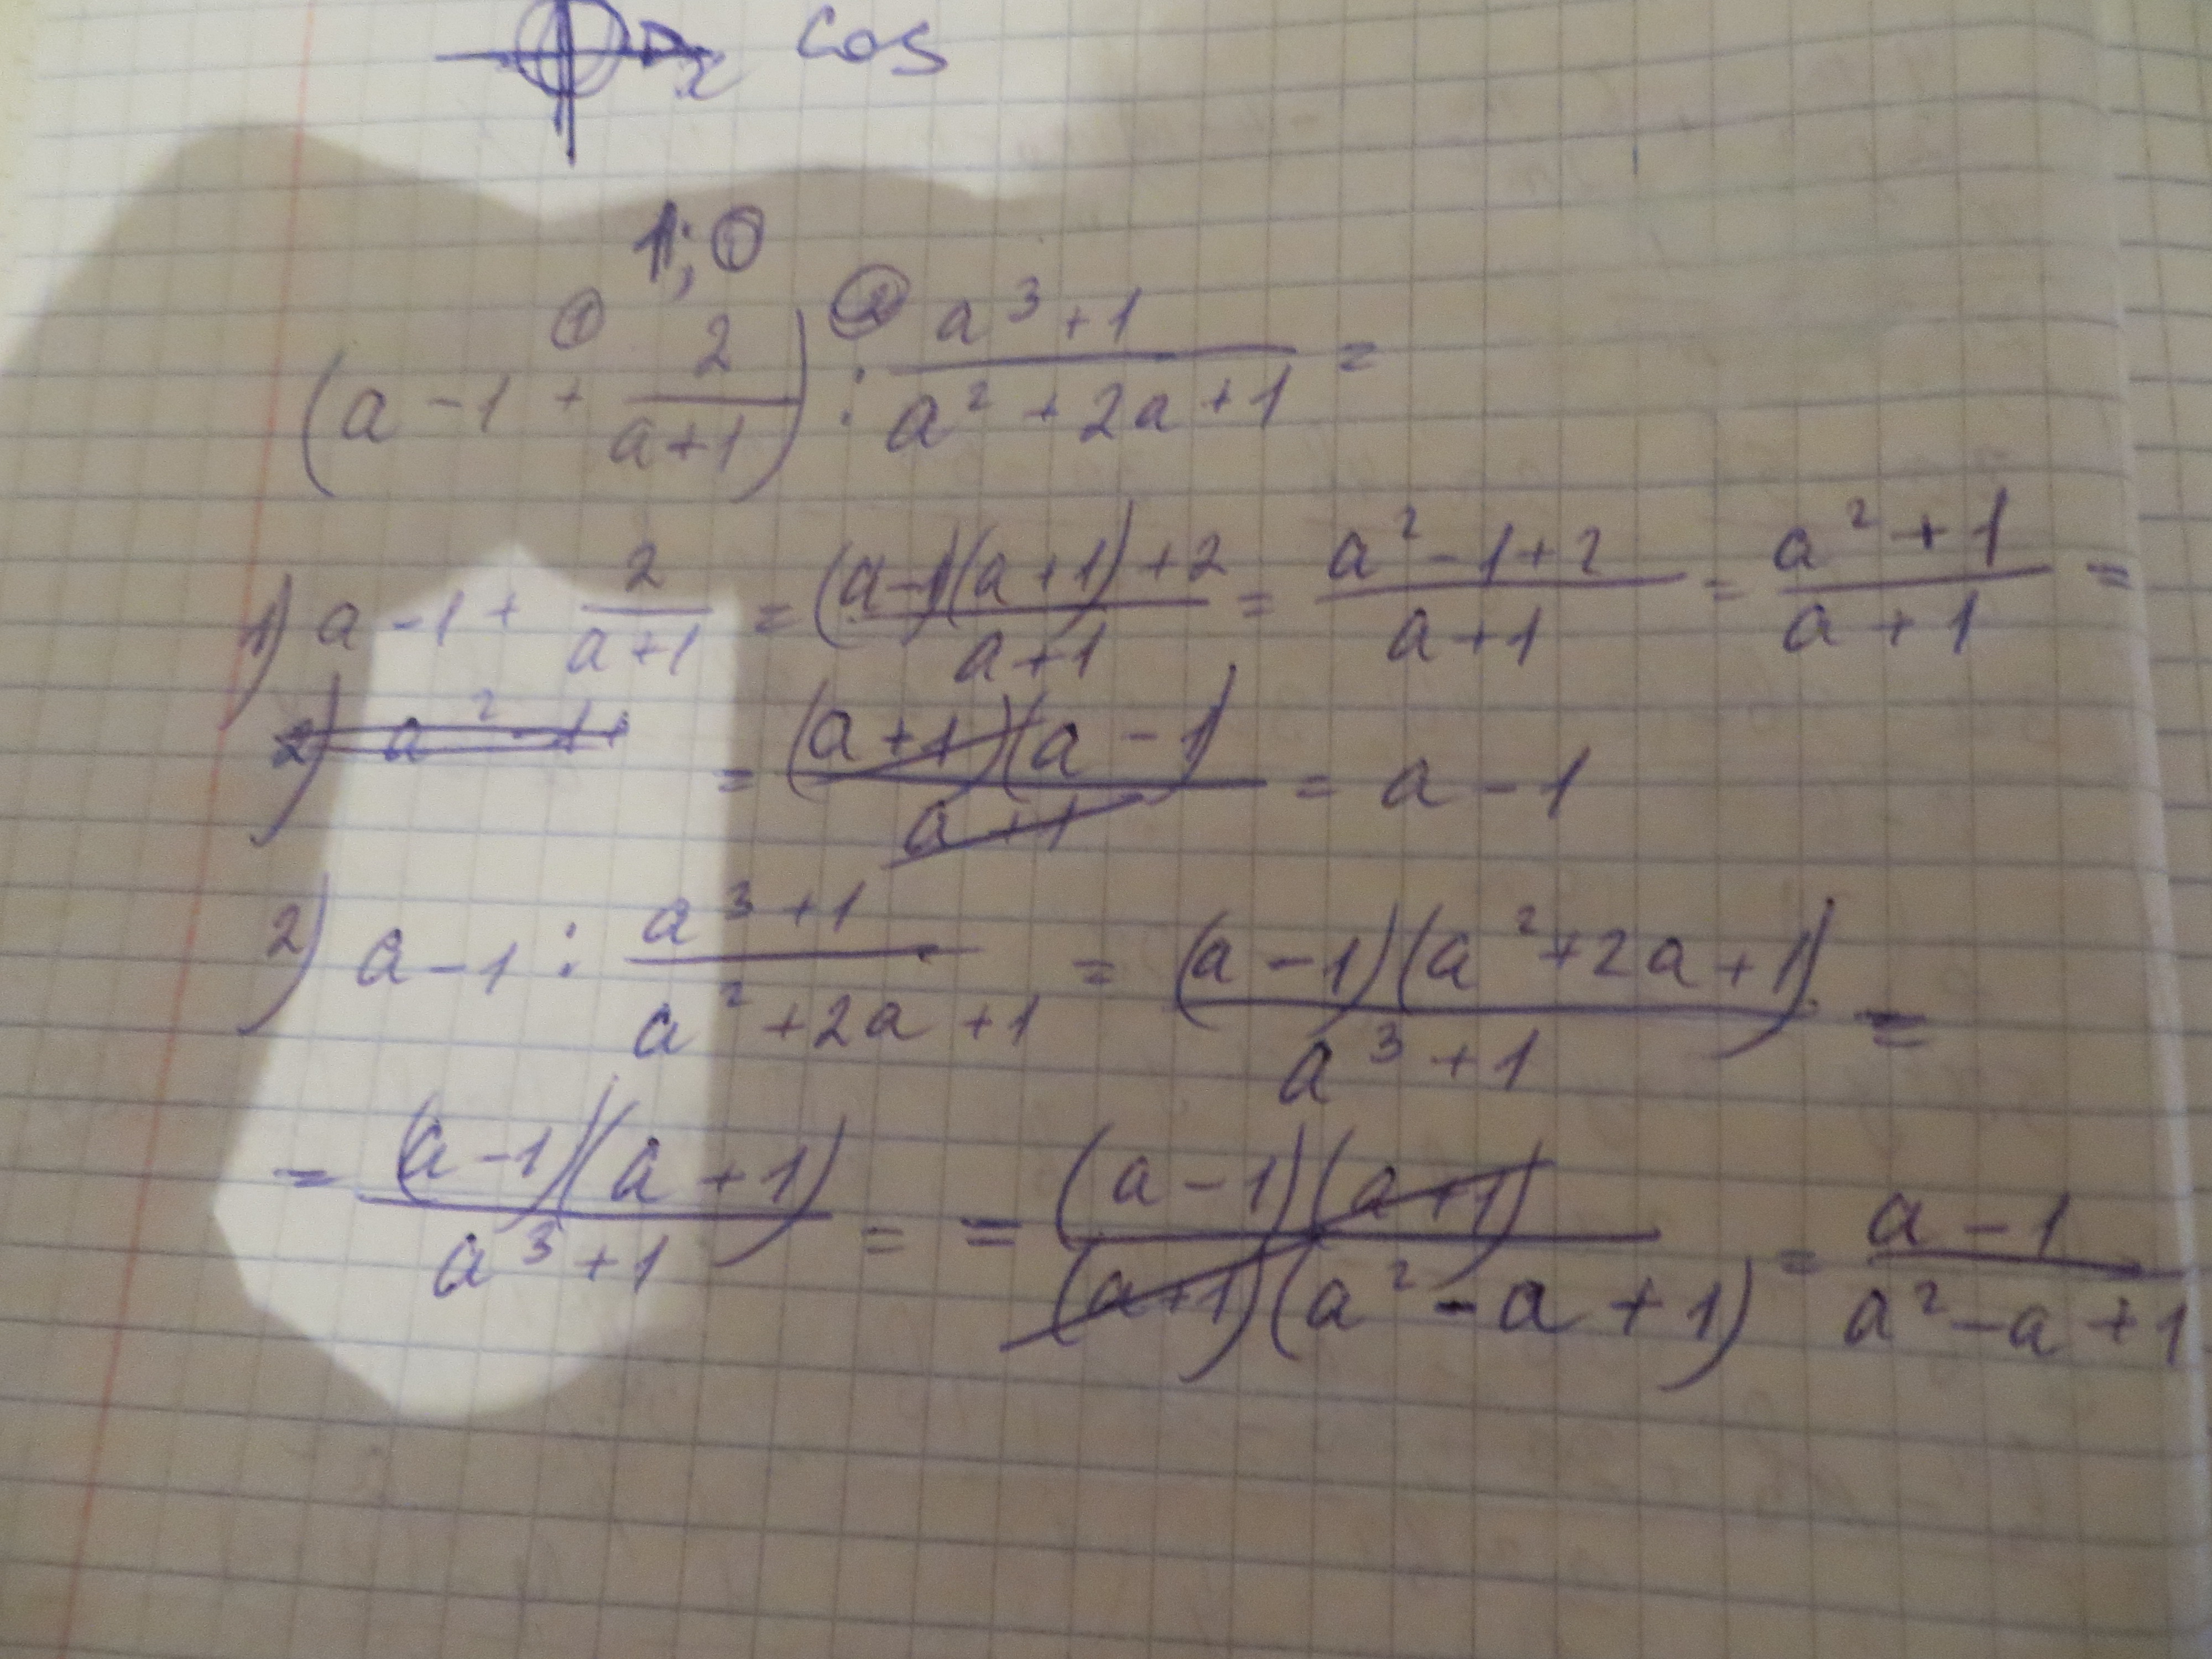 x cos
1; 0
(a - 1 + 2/(a+1)) : (a³+1)/(a²+2a+1) =
1) a - 1 + 2/(a+1) = ((a-1)(a+1)+2)/(a+1) = (a²-1+2)/(a+1) = (a²+1)/(a+1) =
= ((a+1)(a-1))/(a+1) = a - 1
2) a - 1 : (a³+1)/(a²+2a+1) = ((a-1)(a²+2a+1))/(a³+1) =
= ((a-1)(a+1))/(a³+1) = = ((a-1)(a+1))/((a+1)(a²-a+1)) = (a-1)/(a²-a+1)